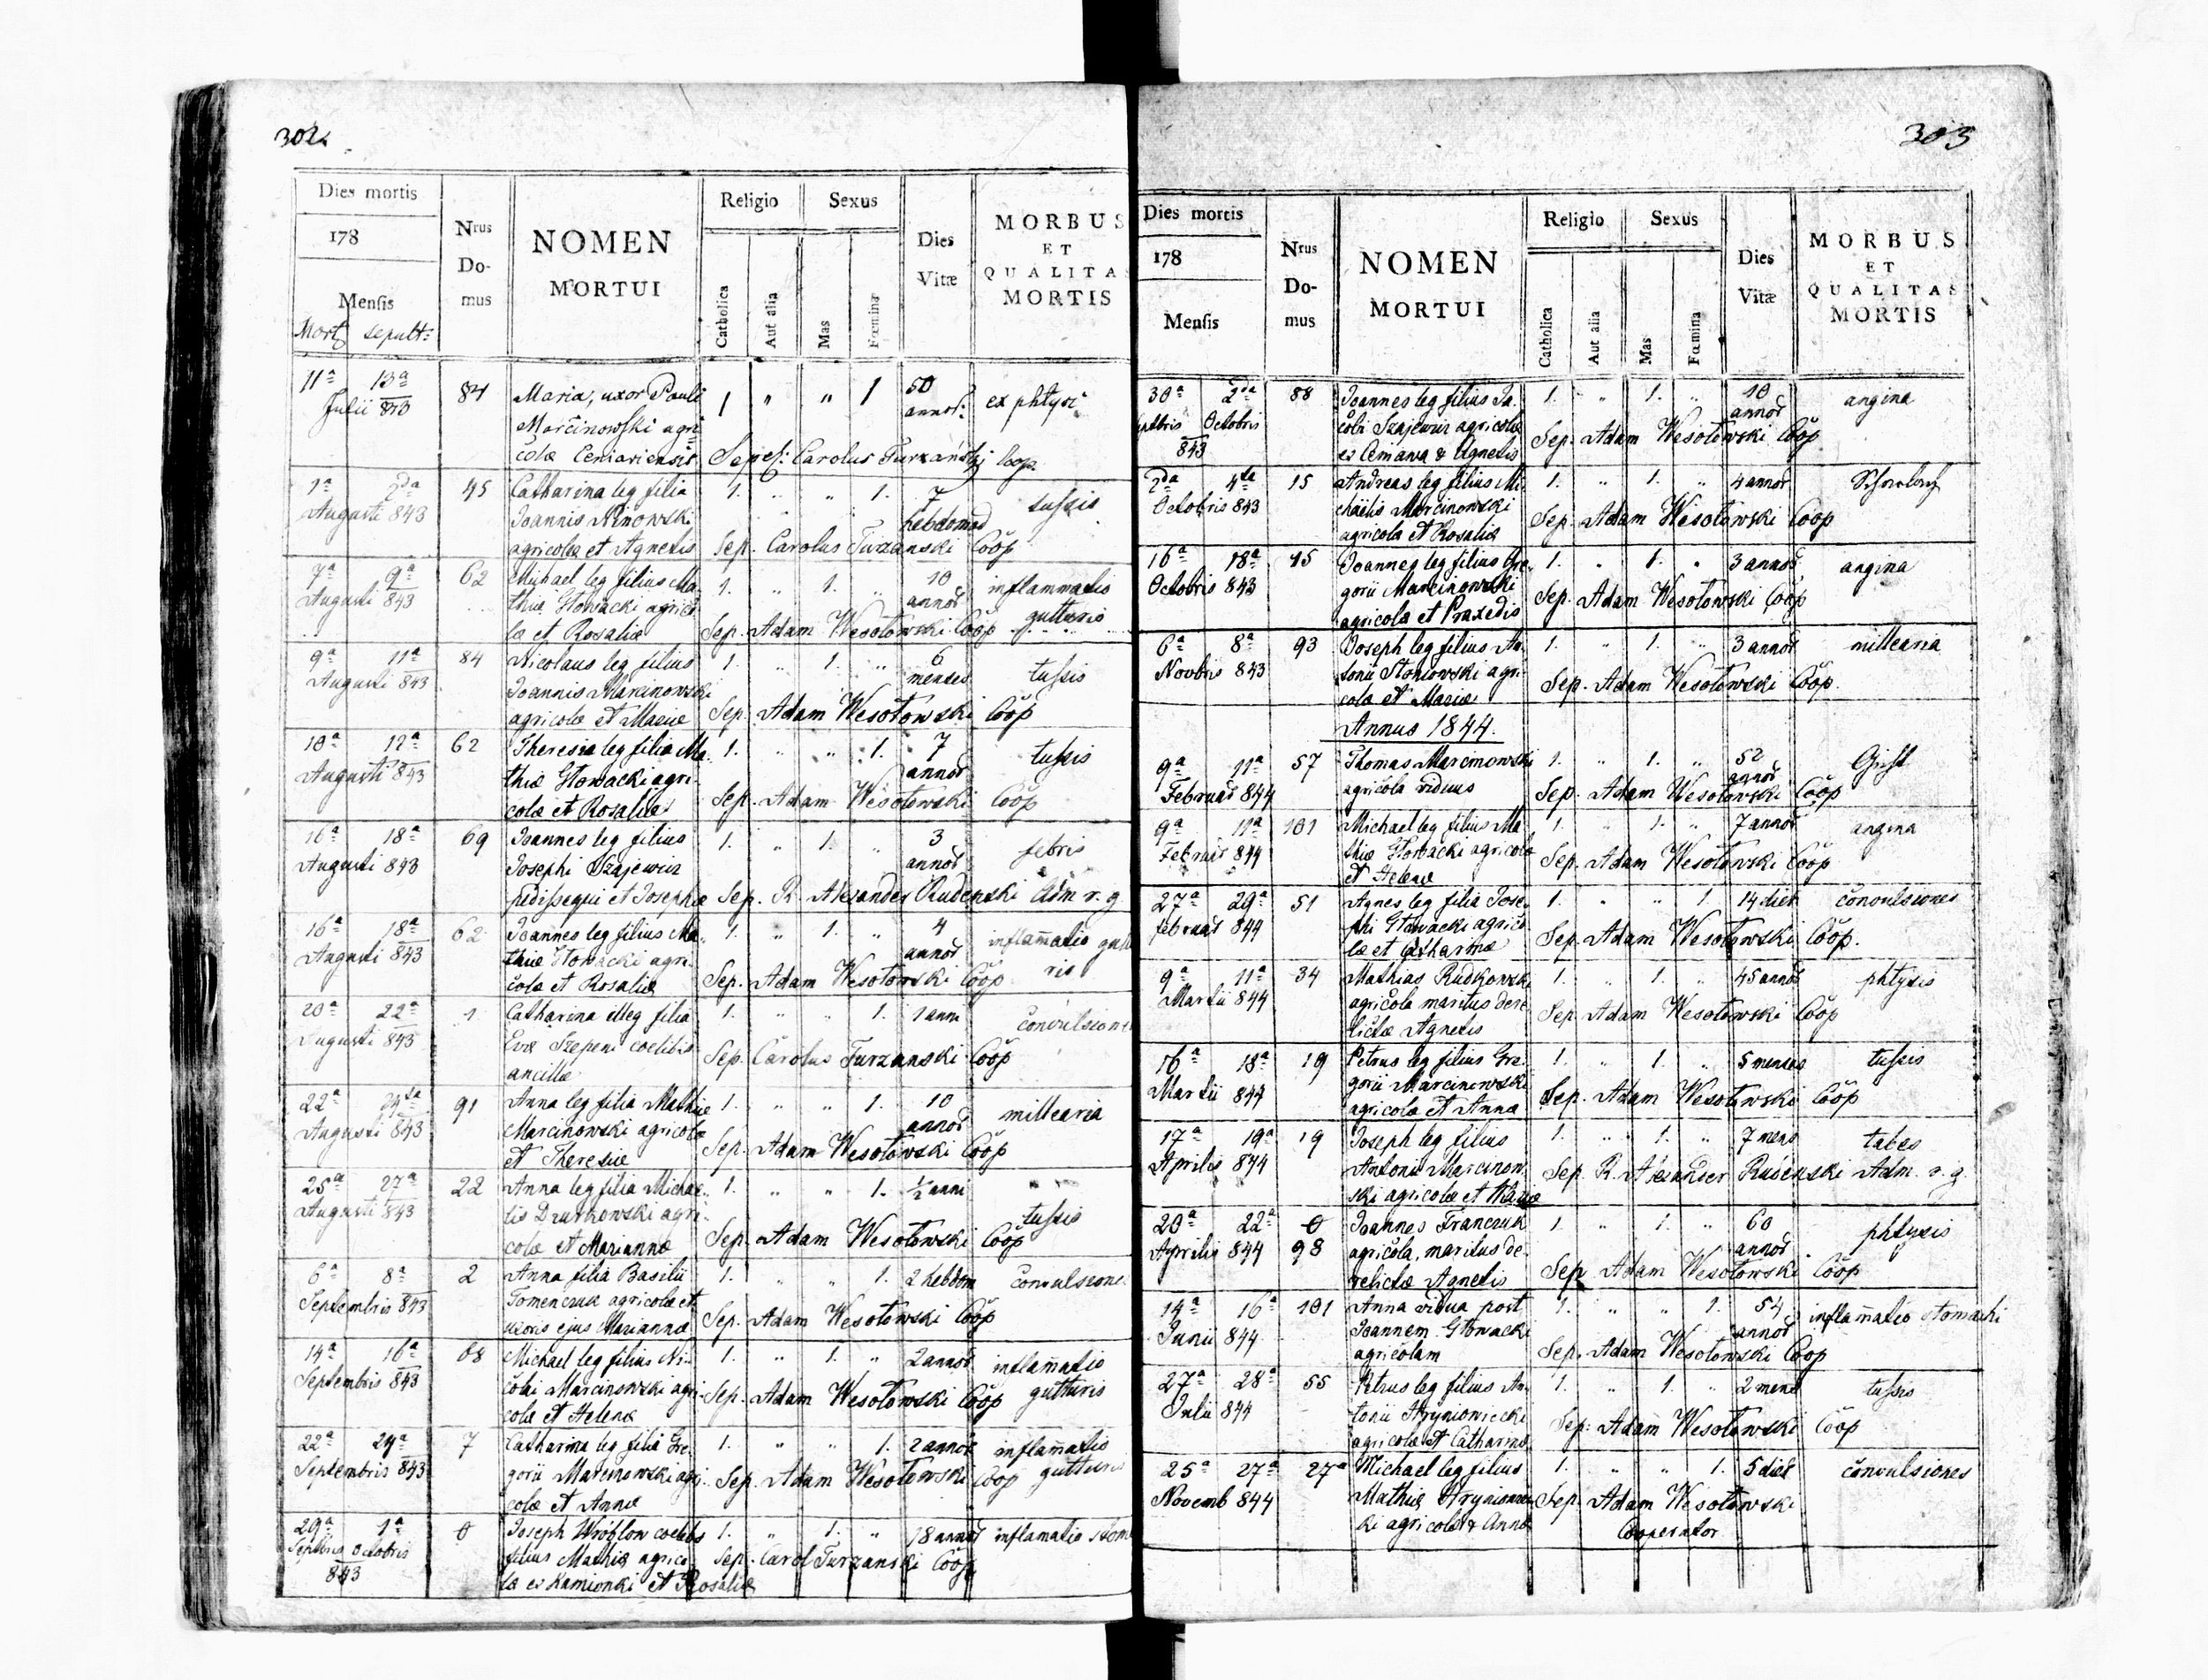 302.
Dies mortis
178
Mensis
Mort sepult:
Nrus Do- mus
NOMEN
MORTUI
Religio
Sexus
Catholica
Aut alia
Mas
Fœmina
Dies
Vitæ
MORBUS
ET
QUALITA
MORTIS
11ª 13ª 84 Maria, uxor Pauli 1 " " 1 50
Julii 843 Marcinowski agri annor: ex phtysi
colæ Ceniaviensis Sepel: Carolus Turzański Coop
1ª 2da 45 Catharina leg filia 1. " " 1. 7 tussis
Augusti 843 Joannis hebdomad
agricolæ et Agnetis Sep. Carolus Turzanski Coop
7ª 9ª 62 Michael leg filius Ma 1. " 1. " 10 inflammatio
Augusti 843 thiæ Głowacki agrico annor gutturis
læ et Rosaliæ Sep. Adam Wesołowski Coop
9ª 11ª 84 Nicolaus leg filius 1. " 1. " 6
Augusti 843 Joannis Marcinowski menses tussis
agricolæ et Mariæ Sep. Adam Wesołowski Coop
10ª 12ª 62 Theresia leg filia Ma 1. " " 1. 7
Augusti 843 thiæ Głowacki agri- annor tussis
colæ et Rosaliæ Sep. Adam Wesołowski Coop
16ª 18ª 69 Joannes leg filius 1. " 1. " 3
Augusti 843 Josephi Szajewicz annor febris
pedissequi et Josephæ Sep. R. Alexander Rudenski Adm r. g.
16ª 18ª 62 Joannes leg filius Ma 1. " 1. " 4 inflam̄atio
Augusti 843 thiæ Głowacki agri- annor ris
colæ et Rosaliæ Sep. Adam Wesołowski Coop
20ª 22ª 1 Catharina illeg filia 1. " " 1. 1 anni
Augusti 843 Evæ Szepeni coelibis convulsione
ancillæ Sep. Carolus Turzanski Coop
22ª 24ta 91 Anna leg filia Mathiæ 1. " " 1. 10
Augusti 843 Marcinowski agricolæ annor millearia
et Theresiæ Sep. Adam Wesołowski Coop
25ª 27ª 22 Anna leg filia Michae 1. " " 1. ½ anni
Augusti 843 lis agri- tussis
colæ et Mariannæ Sep. Adam Wesołowski Coop
6ª 8ª 2 Anna filia Basilii 1. " " 1. 2 hebdom convulsione
Septembris 843 Tomenczuk agricolæ et
uxoris ejus Mariannæ Sep. Adam Wesołowski Coop
14ª 16ª 68 Michael leg filius Ni- 1. " 1. " 2 annor inflam̄atio
Septembris 843 colai Marcinowski agri- gutturis
colæ et Helenæ Sep. Adam Wesołowski Coop
22ª 24ª 7 Catharina leg filia Gre 1. " " 1. 2 annor inflam̄atio
Septembris 843 gorii Marcinowski agri- gutturis
colæ et Annæ Sep. Adam Wesołowski Coop
29ª 1ª 0 Joseph Wróblow coelebs 1. " 1. " 18 annor inflamatio stom
Septbris Octobris filius Mathiæ agrico
843 læ ex Kamionki et Rosaliæ Sep. Carol Turzanski Coop
303
Dies mortis
178
Mensis
Nrus Do- mus
NOMEN
MORTUI
Religio
Sexus
Catholica
Aut alia
Mas
Fœmina
Dies
Vitæ
MORBUS
ET
QUALITAS
MORTIS
30ª 2da 88 Joannes leg filius Ja- 1. " 1. " 10 angina
Octobris cobi Szajewicz agricolæ annor
843 ex Ceniawa & Agnetis Sep. Adam Wesołowski Coop
2da 4ta 15 Andreas leg filius Mi- 1. " 1. " 4 annor
Octobris 843 chaelis Marcinowski
agricolæ et Rosaliæ Sep. Adam Wesołowski Coop
16ª 18ª 45 Joannes leg filius Gre- 1. " 1. " 3 annor angina
Octobris 843 gorii Marcinowski
agricolæ et Praxedis Sep. Adam Wesołowski Coop
6ª 8ª 93 Joseph leg filius An- 1. " 1. " 3 annor millearia
Novbris 843 tonii agri-
colæ et Mariæ Sep. Adam Wesołowski Coop.
Annus 1844.
9ª 11ª 57 Thomas Marcinowski 1. " 1. " 52
Februar 844 agricola viduus annor
Sep. Adam Wesołowski Coop
9ª 11ª 101 Michael leg filius Ma- 1. " 1. " 7 annor angina
Februar 844 thiæ Głowacki agricolæ
et Helenæ Sep. Adam Wesołowski Coop
27ª 29ª 51 Agnes leg filia Jose- 1. " " 1. 14 dier convulsiones
februar 844 phi Głowacki agrico
læ et Catharinæ Sep. Adam Wesołowski Coop.
9ª 11ª 34 Mathias Rudkowski 1. " 1. " 45 annor phtysis
Martii 844 agricola maritus dere
lictæ Agnetis Sep. Adam Wesołowski Coop
16ª 18ª 19 Petrus leg filius Gre- 1. " 1. " 5 menses tussis
Martii 844 gorii Marcinowski
agricolæ et Annæ Sep. Adam Wesołowski Coop
17ª 19ª 19 Joseph leg filius 1. " 1. " 7 mens tabes
Aprilis 844 Antonii Marcinow
ski agricolæ et Mariæ Sep. R. Alexander Rudenski Adm. r. g.
20ª 22ª 0 Joannes Franczuk 1. " 1. " 60
Aprilis 844 98 agricola, maritus de- annor phtysis
relictæ Agnetis Sep Adam Wesołowski Coop
14ª 16ª 101 Anna vidua post 1. " " 1. 54 inflam̄atio stomachi
Junii 844 Joannem Głowacki annor
agricolam Sep. Adam Wesołowski Coop
27ª 28ª 55 Petrus leg filius An- 1. " 1. " 2 mens tussis
Julii 844 tonii Hryniowiecki
agricolæ et Catharinæ Sep. Adam Wesołowski Coop
25ª 27ª 27ª Michael leg filius 1. " " 1. 5 dier convulsiones
Novemb 844 Mathiæ Sep. Adam Wesołowski
ki agricolæ & Annæ Cooperator